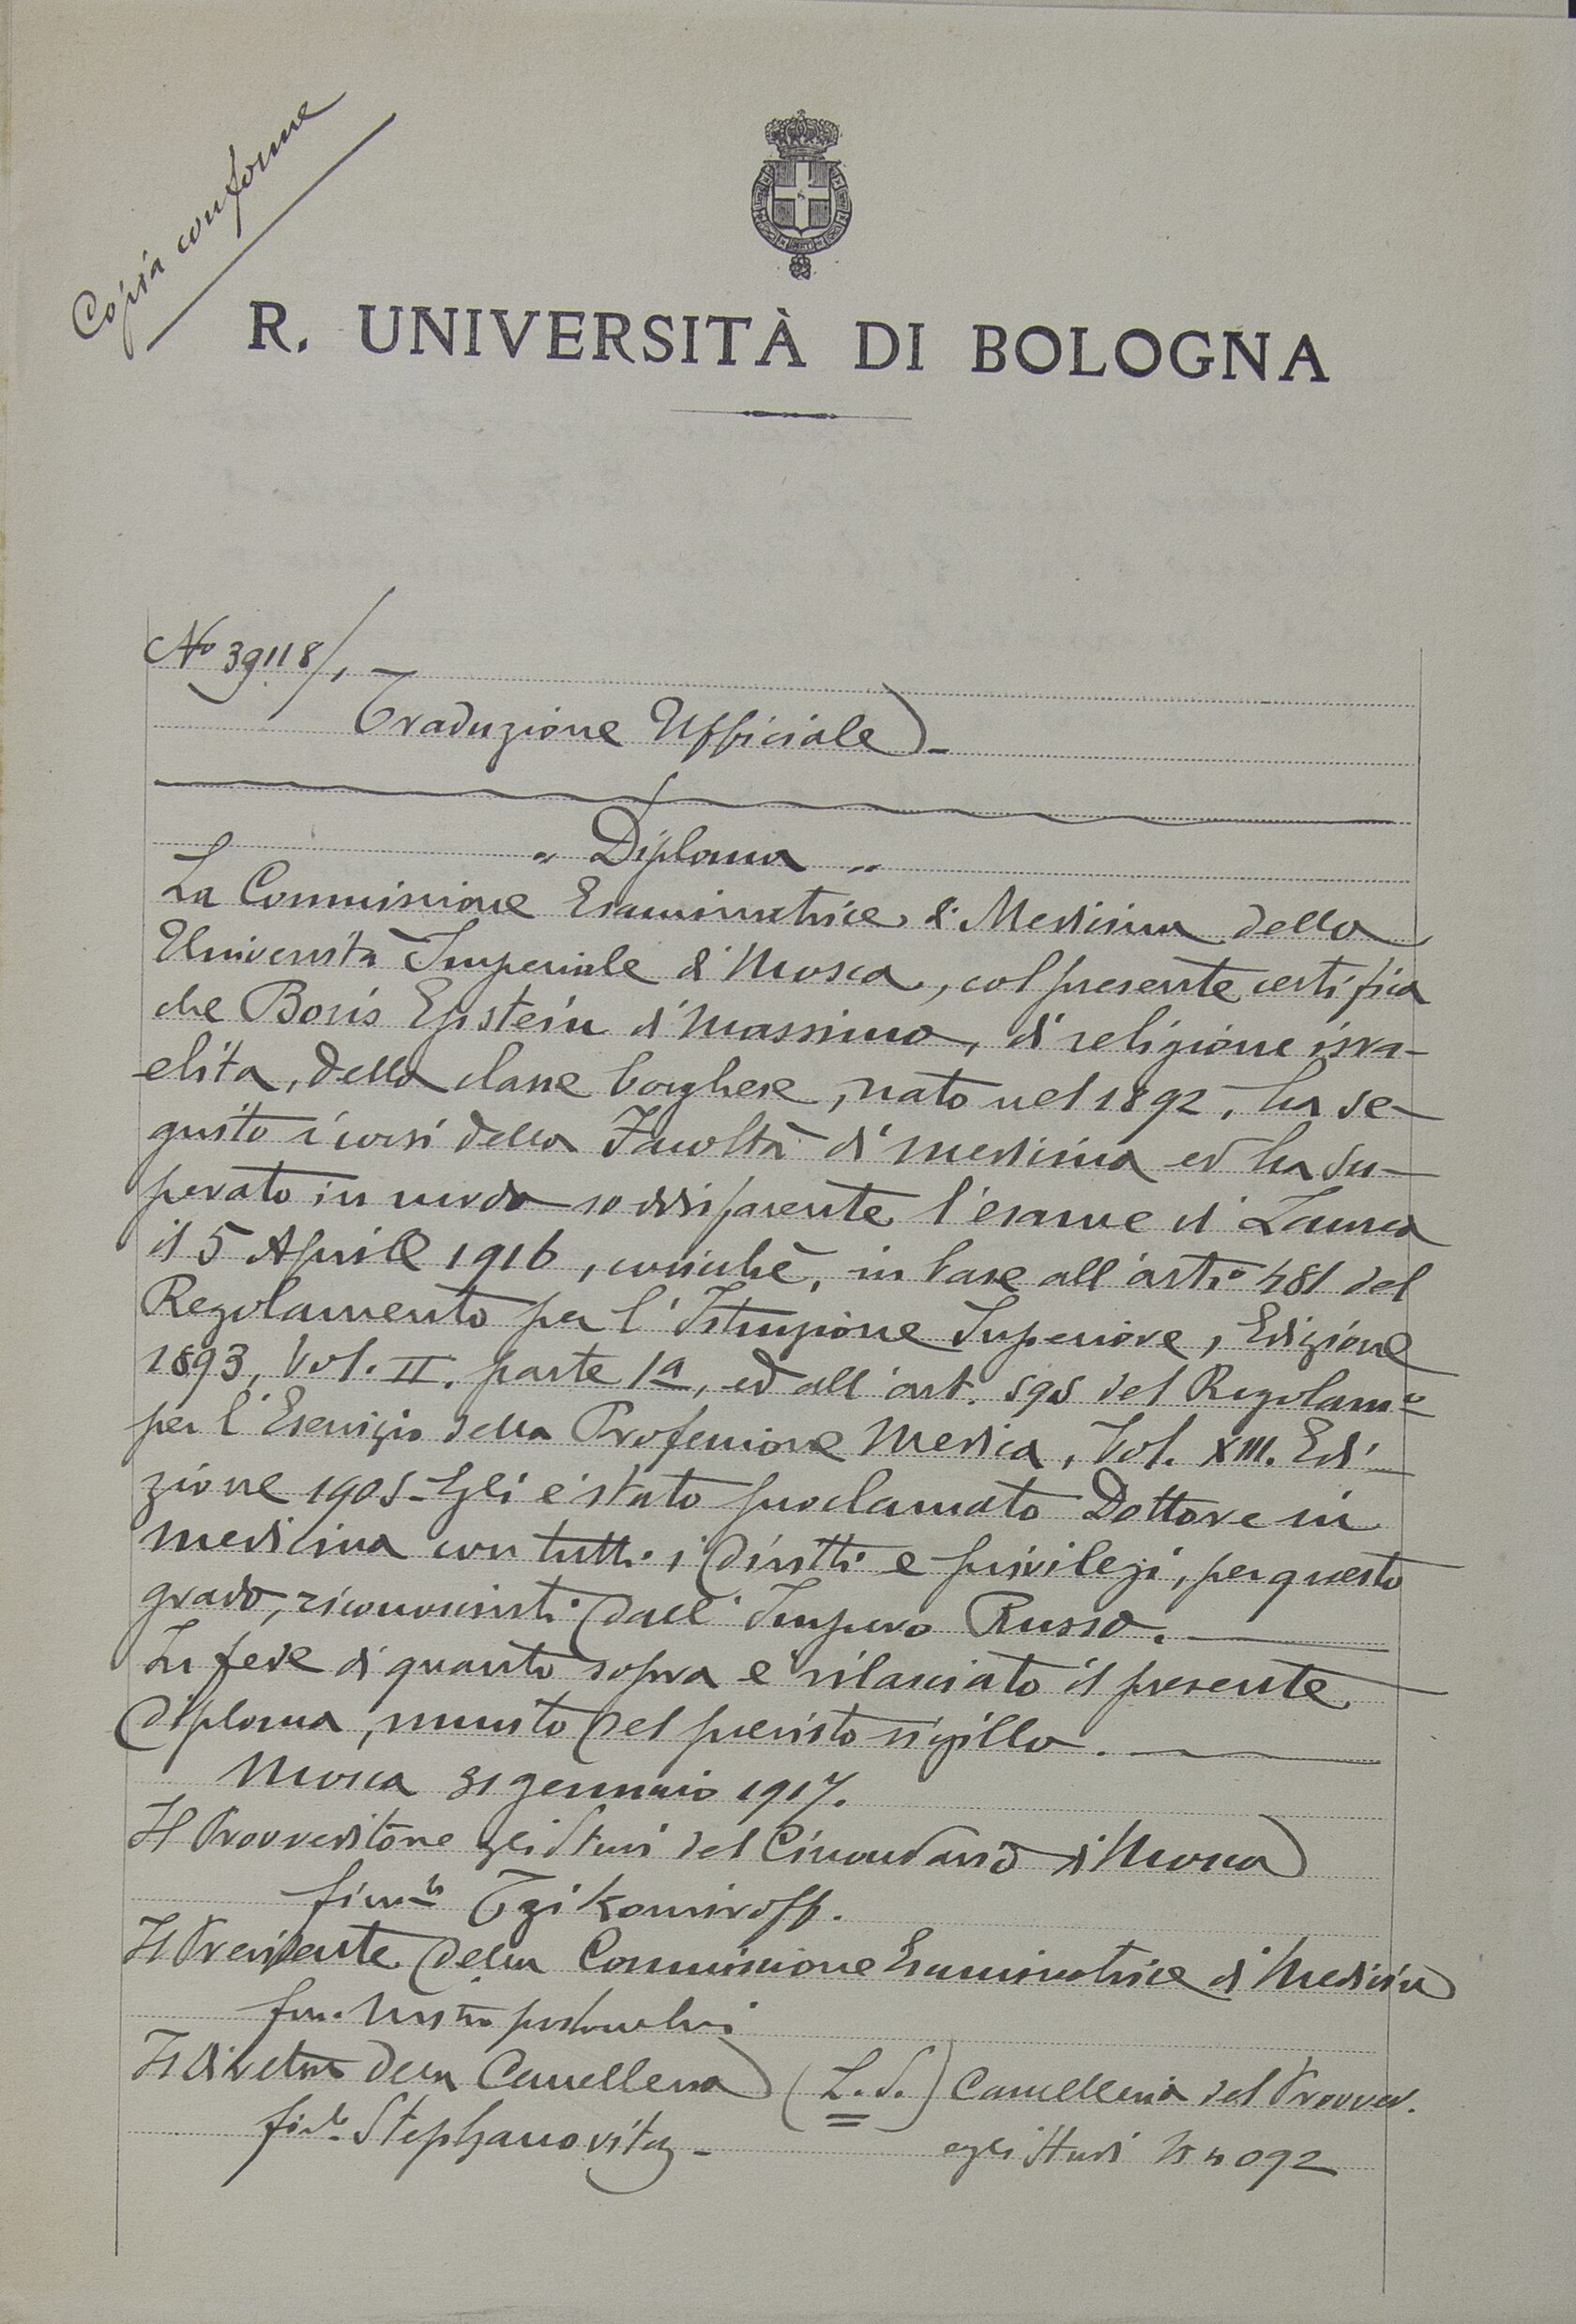 Copia conforme
R. UNIVERSITÀ DI BOLOGNA
No 39118/1
Traduzione Ufficiale
" Diploma "
La Commissione Esaminatrice di Medicina della
Università Imperiale di Mosca, col presente certifica
che Boris Epstein di Massimo, di religione isra-
elita, della classe borghese, nato nel 1892, ha se-
guito i corsi della Facoltà di Medicina ed ha su-
perato in modo soddisfacente l'esame di Laurea
il 5 Aprile 1916, cosichè, in base all'arto 481 del
Regolamento per l'Istruzione Superiore, Edizione
1893, Vol. II. parte 1a, ed all'art. 595 del Regolamo
per l'Esercizio della Professione Medica, Vol. XIII. Edi-
zione 1905 - Gli è stato proclamato Dottore in
Medicina con tutti i diritti e privilegi, per questo
grado, riconosciuti dall'Impero Russo.
In fede di quanto sopra è rilasciato il presente
Diploma, munito del previsto sigillo.
Mosca 31 gennaio 1917.
Il Provveditore agli Studi del Circondario di Mosca
firmto Tzikomiroff.
Il Presidente della Commissione Esaminatrice di Medicina
fir.
Il direttore della Cancelleria (L. S.) Cancelleria del Provved.
firto Stephanovitz - agli Studi N 4092